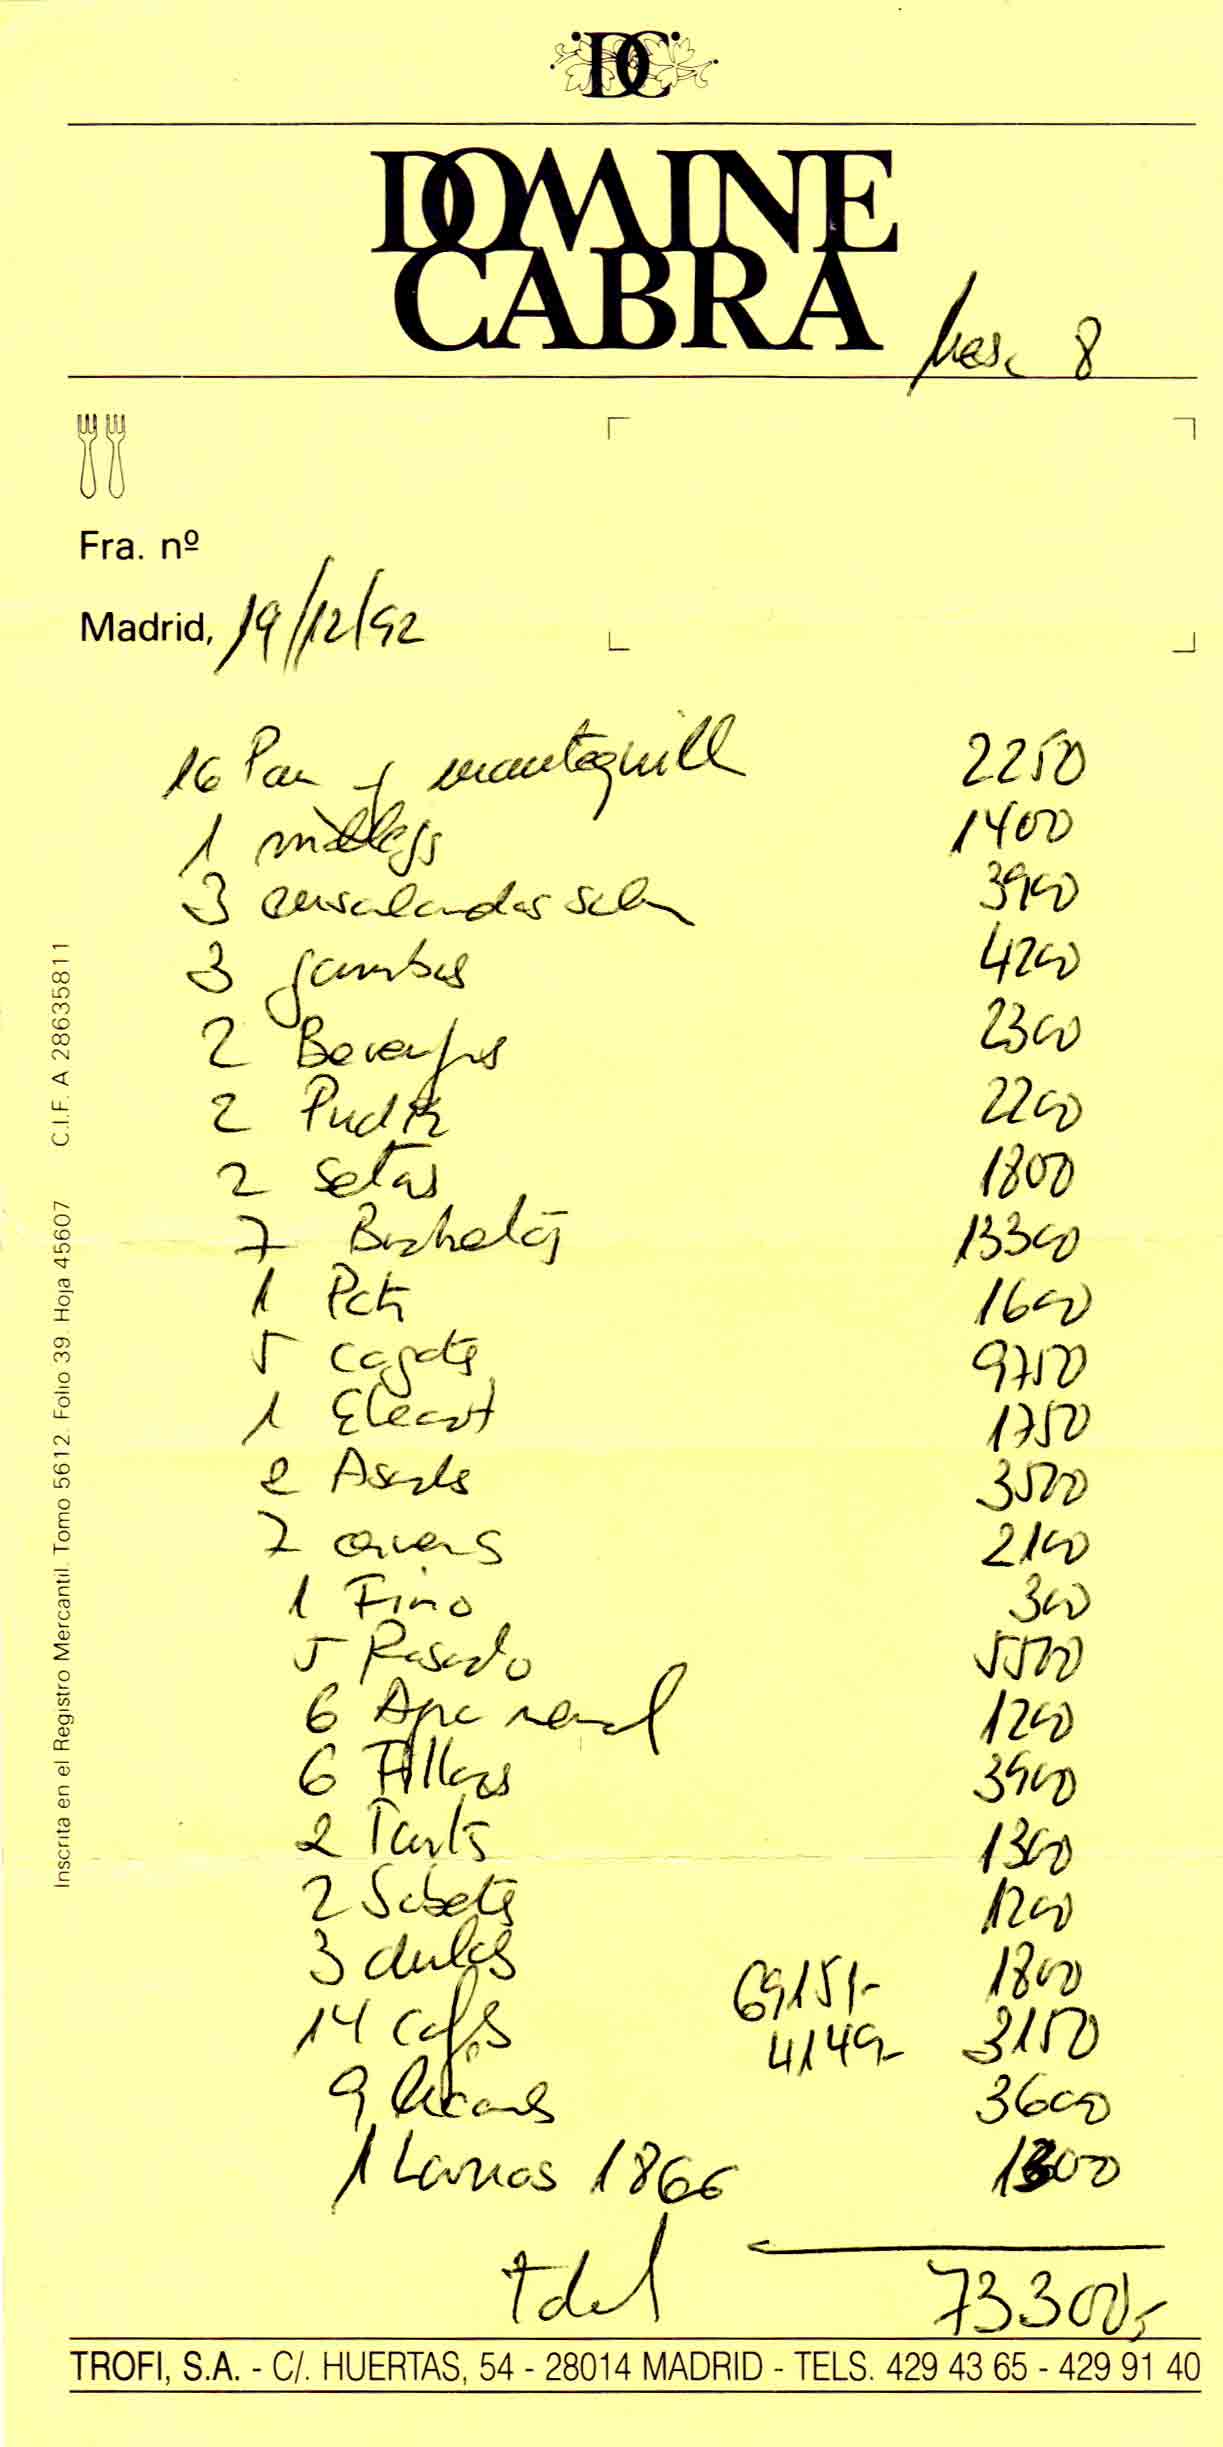 DC
DOMINE
CABRA
Mesa 8
Fra. nº
Madrid, 19/12/92
16 Pan y mantequill 2250
1 mollejs 1400
3 ensalandas salm 3900
3 gambas 4200
2 Berenjns 2300
2 Pudin 2200
2 setas 1800
7 Brochetas 13300
1 Pato 1600
5 cogote 9750
1 Elecart 1750
2 Asado 3500
7 cervens 2100
1 Fino 300
5 Rosado 5500
6 Agua 1200
6 Filloas 3900
2 Tarts 1300
2 Sobetes 1200
3 dulces 1800
69151,-
14 cafés 3150
4149,-
9 licores 3600
1 Larios 1866 1300
total 73300,-
TROFI, S.A. - C/. HUERTAS, 54 - 28014 MADRID - TELS. 429 43 65 - 429 91 40
Inscrita en el Registro Mercantil. Tomo 5612. Folio 39. Hoja 45607 C.I.F. A 28635811